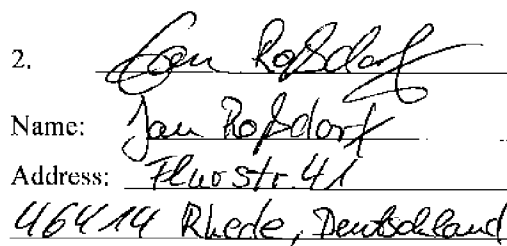 2. Jan Roßdorf
Name: Jan Roßdorf
Address: Flurstr. 41
46414 Rhede, Deutschland